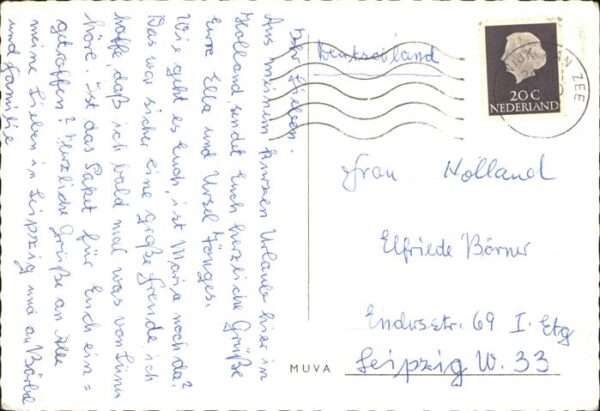 Ihr Lieben.
Aus meinem kurzen Urlaub hier in
Holland sendet Euch herzliche Grüße
Eure Ella und Ursel Jönges.
Wie geht es Euch, ist Maria noch da?
Das war sicher eine große Freude ich
hoffe, daß ich bald mal was von
höre. ist das Paket für Euch ein=
getroffen? Herzliche Grüße an Alle
meine Lieben in Leipzig und an Bärbel
und Familie
Deutschland
20 C
NEDERLAND
ZEE
Frau Holland
Elfriede Börner
Endersstr. 69 I. Etg
Leipzig W. 33
MUVA